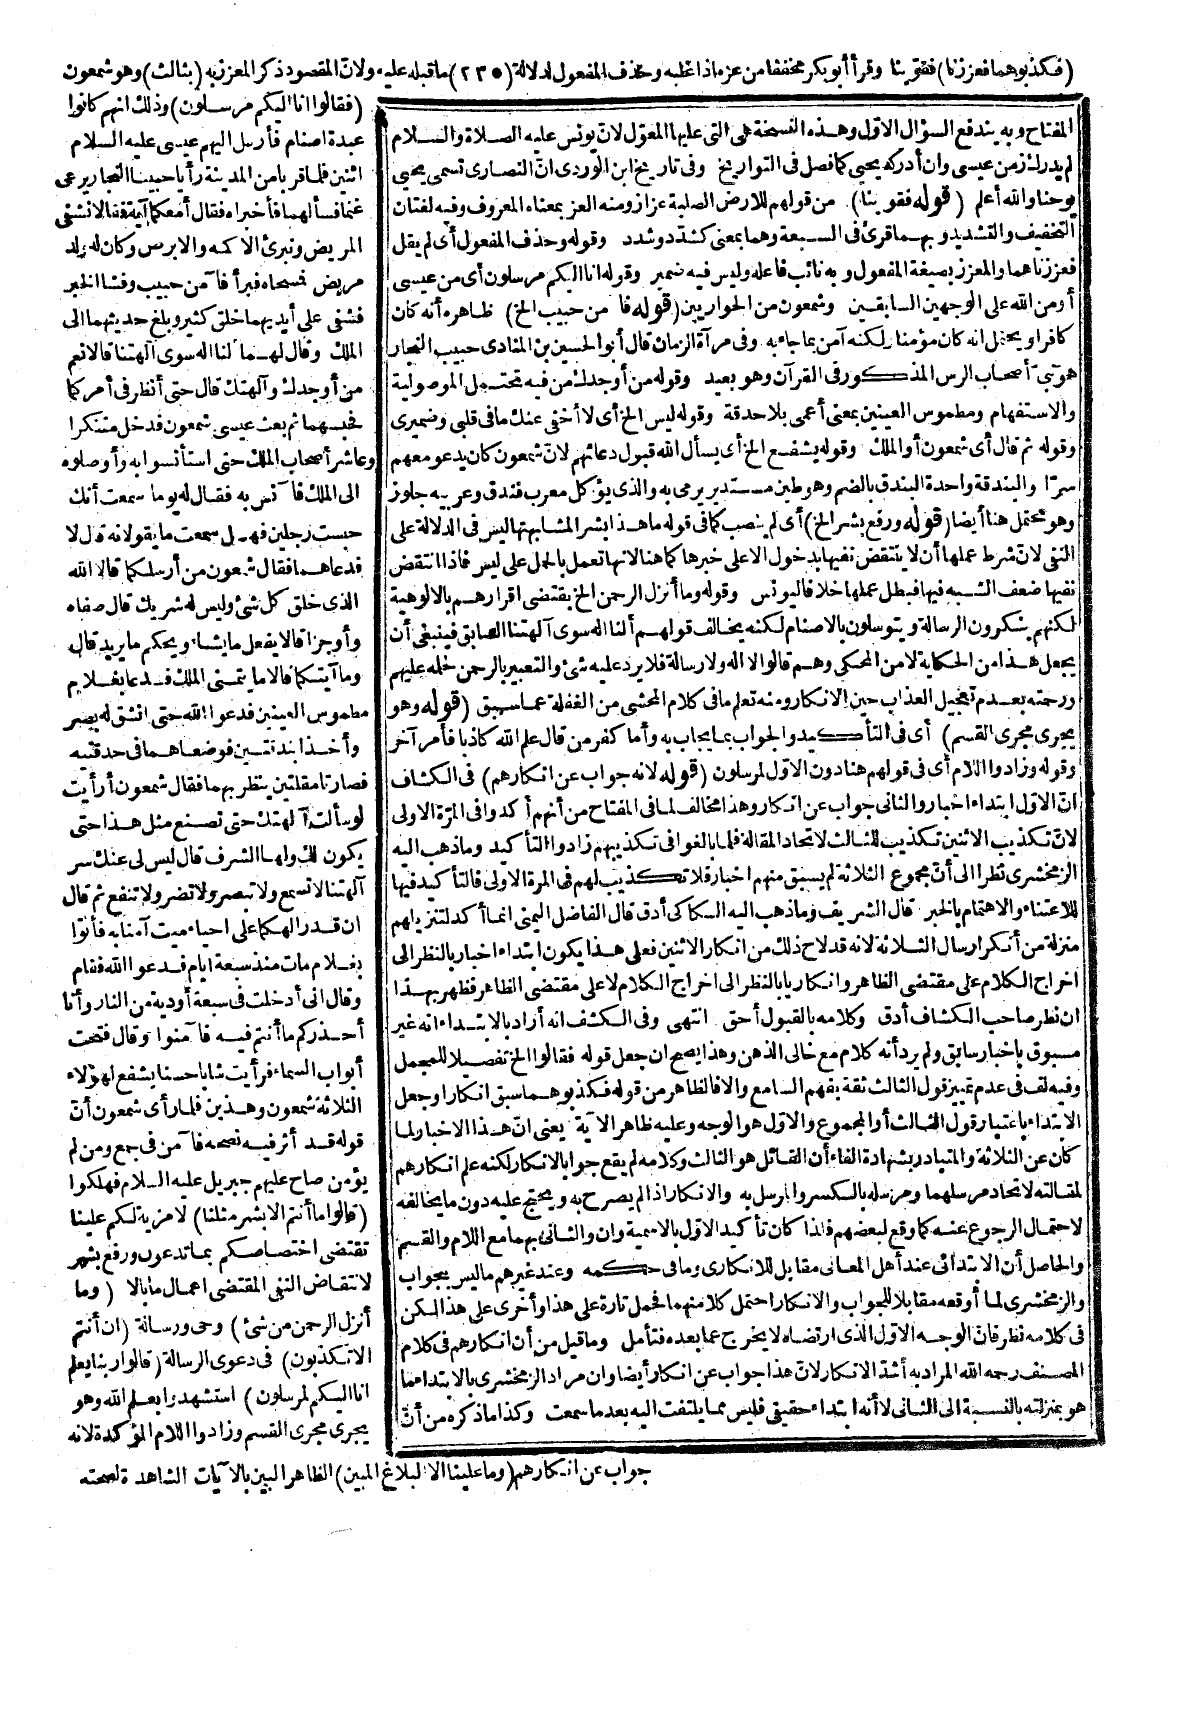 (فكذبوهما فعززنا) فقوّينا وقرأ أبو بكر مخففا من عزه اذا غلبه وحذف المفعول لدلالة (٢٣٥) ما قبله عليه ولانّ المقصود ذكر المعزز به (بثالث) وهو شمعون
(فقالوا انا اليكم مرسلون) وذلك انهم كانوا
عبدة اصنام فأرسل اليهم عيسى عليه السلام
اثنين فلما قربا من المدينة رأيا حبيبا النجار يرعى
غنما فسألهما فأخبراه فقال أمعكما آية فقالا نشفى
المريض ونبرئ الاكمه والابرص وكان له ولد
مريض فمسحاه فبرأ فآمن حبيب وفشا الخبر
فشفى على أيديهما خلق كثير وبلغ حديثهما الى
الملك وقال لهما ألنا اله سوى آلهتنا قالا نعم
من أوجدك وآلهتك قال حتى أنظر فى أمركما
فحبسهما ثم بعث عيسى شمعون فدخل متنكرا
وعاشر أصحاب الملك حتى استأنسوا به وأوصلوه
الى الملك فآنس به فقال له يوما سمعت أنك
حبست رجلين فهل سمعت ما يقولانه قال لا
فدعاهما فقال شمعون من أرسلكما قالا الله
الذى خلق كل شئ وليس له شريك قال صفاه
وأوجزا قالا يفعل ما يشاء ويحكم ما يريد قال
وما آيتكما قالا ما يتمنى الملك فدعا بغلام
مطموس العينين فدعوا الله حتى انشق له بصر
وأخذا بندقتين فوضعاهما فى حدقتيه
فصارتا مقلتين ينظر بهما فقال شمعون أرأيت
لو سألت آلهتك حتى تصنع مثل هذا حتى
يكون لك ولها الشرف قال ليس لى عنك سر
آلهتنا لا تسمع ولا تبصر ولا تضر ولا تنفع ثم قال
ان قدر الهكما على احياء ميت آمنا به فأتوا
بغلام مات منذ سبعة أيام فدعوا الله فقام
وقال انى أدخلت فى سبعة أودية من النار وأنا
أحذركم ما أنتم فيه فآمنوا وقال فتحت
أبواب السماء فرأيت شابا حسنا يشفع لهؤلاء
الثلاثة شمعون وهذين فلما رأى شمعون أنّ
قوله قد أثر فيه نصحه فآمن فى جمع ومن لم
يؤمن صاح عليهم جبريل عليه السلام فهلكوا
(قالوا ما أنتم الا بشر مثلنا) لا مزية لكم علينا
تقتضى اختصاصكم بما تدعون ورفع بشر
لانتقاض النفى المقتضى اعمال ما بالا (وما
أنزل الرحمن من شئ) وحى ورسالة (ان أنتم
الا تكذبون) فى دعوى الرسالة (قالوا ربنا يعلم
انا اليكم لمرسلون) استشهدوا بعلم الله وهو
يجرى مجرى القسم وزادوا اللام المؤكدة لانه
جواب عن انكارهم (وما علينا الا البلاغ المبين) الظاهر البين بالآيات الشاهدة لصحته
المفتاح وبه يندفع السؤال الاوّل وهذه النسخة هى التى عليها المعوّل لانّ يونس عليه الصلاة والسلام
لم يدرك زمن عيسى وان أدركه يحيى كما فصل فى التواريخ وفى تاريخ ابن الوردى انّ النصارى تسمى يحيى
يوحنا والله أعلم (قوله فقوينا) من قولهم للارض الصلبة عزاز ومنه العز بمعناه المعروف وفيه لغتان
التخفيف والتشديد وبهما قرئ فى السبعة وهما بمعنى كشدّ وشدد وقوله وحذف المفعول أى لم يقل
فعززناهما والمعزز بصيغة المفعول وبه نائب فاعله وليس فيه ضمير وقوله انا اليكم مرسلون أى من عيسى
أو من الله على الوجهين السابقين وشمعون من الحواريين (قوله فآمن حبيب الخ) ظاهره أنه كان
كافرا ويحتمل انه كان مؤمنا ولكنه آمن بما جاء به وفى مرآة الزمان قال أبو الحسين بن المنادى حبيب النجار
هو نبىّ أصحاب الرس المذكور فى القرآن وهو بعيد وقوله من أوجدك من فيه تحتمل الموصولية
والاستفهام ومطموس العينين بمعنى أعمى بلا حدقة وقوله ليس الخ أى لا أخفى عنك ما فى قلبى وضميرى
وقوله ثم قال أى شمعون أو الملك وقوله يشفع الخ أى يسأل الله قبول دعائهم لانّ شمعون كان يدعو معهم
سرّا والبندقة واحدة البندق بالضم وهو طين مستدير يرمى به والذى يؤكل معرب فندق وعربيه جلوز
وهو محتمل هنا أيضا (قوله ورفع بشر الخ) أى لم ينصب كما فى قوله ما هذا بشرا لمشابهتها ليس فى الدلالة على
النفى لانّ شرط عملها أن لا ينتقض نفيها بدخول الا على خبرها كما هنا لانها تعمل بالحمل على ليس فاذا انتقض
نفيها ضعف الشبه فيها فبطل عملها خلافا ليونس وقوله وما أنزل الرحمن الخ يقتضى اقرارهم بالالوهية
لكنهم ينكرون الرسالة ويتوسلون بالاصنام لكنه يخالف قولهم ألنا اله سوى آلهتنا السابق فينبغى أن
يجعل هذا من الحكاية لا من المحكى وهم قالوا لا اله ولا رسالة فلا يرد عليه شئ والتعبير بالرحمن لحلمه عليهم
ورحمته بعدم تعجيل العذاب حين الانكار ومنه تعلم ما فى كلام المحشى من الغفلة عما سبق (قوله وهو
يجرى مجرى القسم) أى فى التأكيد والجواب بما يجاب به وأما كفر من قال علم الله كاذبا فأمر آخر
وقوله وزادوا اللام أى فى قولهم هنا دون الاوّل لمرسلون (قوله لانه جواب عن انكارهم) فى الكشاف
انّ الاوّل ابتداء اخبار والثانى جواب عن انكار وهذا مخالف لما فى المفتاح من أنهم أكدوا فى المرّة الاولى
لانّ تكذيب الاثنين تكذيب للثالث لاتحاد المقالة فلما بالغوا فى تكذيبهم زادوا التأكيد وما ذهب اليه
الزمخشرى نظرا الى أنّ مجموع الثلاثة لم يسبق منهم اخبار فلا تكذيب لهم فى المرة الاولى فالتأكيد فيها
للاعتناء والاهتمام بالخبر قال الشريف وما ذهب اليه السكاكى أدق قال الفاضل اليمنى انما أكد لتنزيلهم
منزلة من أنكر ارسال الثلاثة لانه قد لاح ذلك من انكار الاثنين فعلى هذا يكون ابتداء اخبار بالنظر الى
اخراج الكلام على مقتضى الظاهر وانكاريا بالنظر الى اخراج الكلام لا على مقتضى الظاهر فظهر بهذا
ان نظر صاحب الكشاف أدق وكلامه بالقبول أحق انتهى وفى الكشف انه أراد بالابتداء انه غير
مسبوق باخبار سابق ولم يرد أنه كلام مع خالى الذهن وهذا يصح ان جعل قوله فقالوا الخ تفصيلا للمجمل
وفيه لف فى عدم تمييز قول الثالث ثقة بفهم السامع والا فالظاهر من قوله فكذبوهما سبق انكار أو جعل
الابتداء باعتبار قول الثالث أو المجموع والاوّل هو الوجه وعليه ظاهر الآية يعنى انّ هذا الاخبار لما
كان عن الثلاثة والمتبادر بشهادة الفاء أن القائل هو الثالث وكلامه لم يقع جوابا لانكار لكنه علم انكارهم
لمقالته لاتحاد مرسلهما ومرسله بالكسر والمرسل به والانكار اذا لم يصرح به ويحتج عليه دون ما يخالفه
لاحتمال الرجوع عنه كما وقع لبعضهم فلذا كان تأكيد الاوّل بالاسمية وان والثانى بهما مع اللام والقسم
والحاصل أن الابتدائى عند أهل المعانى مقابل للانكارى وما فى حكمه وعند غيرهم ما ليس بجواب
والزمخشرى لما أوقعه مقابلا للجواب والانكار احتمل كلا منهما فحمل تارة على هذا وأخرى على هذا لكن
فى كلامه نظر فانّ الوجه الاول الذى ارتضاه لا يخرج عما بعده فتأمل وما قيل من أن انكارهم فى كلام
المصنف رحمه الله المراد به أشدّ الانكار لانّ هذا جواب عن انكار أيضا وان مراد الزمخشرى بالابتداء ما
هو بمنزلته بالنسبة الى الثانى لا أنه ابتداء حقيقى فليس مما يلتفت اليه بعد ما سمعت وكذا ما ذكره من أنّ